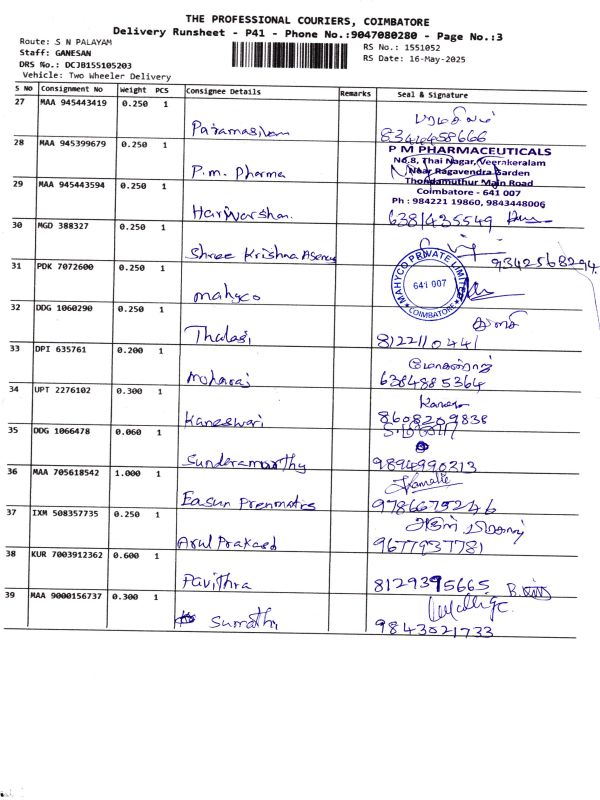 THE PROFESSIONAL COURIERS, COIMBATORE
Delivery Runsheet - P41 - Phone No.:9047080280 - Page No.:3
Route: S N PALAYAM
RS No.: 1551052
Staff: GANESAN
RS Date: 16-May-2025
DRS No.: DCJB155105203
Vehicle: Two Wheeler Delivery
S No Consignment No Weight PCS Consignee Details Remarks Seal & Signature
27 MAA 945443419 0.250 1
Paramasivam
8344458666
28 MAA 945399679 0.250 1
P.m. Pharma
P M PHARMACEUTICALS
No.8, Thai Nagar, Veerakeralam
Near Ragavendra Garden
Thondamuthur Main Road
Coimbatore - 641 007
Ph : 984221 19860, 9843448006
29 MAA 945443594 0.250 1
Hariwarshan.
6381435549
30 MGD 388327 0.250 1
Shree Krishna Agency
9342568294
31 PDK 7072600 0.250 1
mahyco
MAHYCO PRIVATE LIMITED
641 007
COIMBATORE
32 DDG 1060290 0.250 1
Thulasi துளசி
8122110441
33 DPI 635761 0.200 1
moharaj
6384885364
34 UPT 2276102 0.300 1
Kaneswari
8608209838
35 DDG 1066478 0.060 1
Sunderamorthy
9894990213
36 MAA 705618542 1.000 1
Easun Prenmatrs
9786675246
37 IXM 508357735 0.250 1
Arul Prakasd
9677937781
38 KUR 7003912362 0.600 1
Pavithra
8129395665
39 MAA 9000156737 0.300 1
Sumathi
9843021733